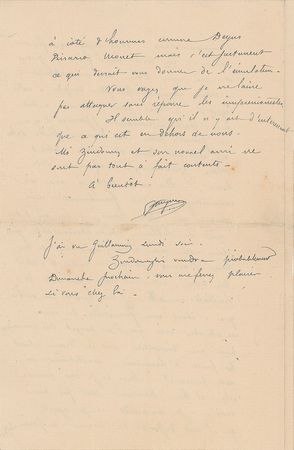 à côté d'hommes comme Degas
Pissarro Monet mais c'est justement
ce qui devrait vous donner de l'émulation.
Vous voyez que je ne laisse
pas attaquer sans réponse les impressionnistes
Il semble qu'il n'y ait d'intéressant
que ce qui est en dehors de nous.
et son nouvel ami ne
sont pas tout à fait contents.
A bientôt.
J'ai vu Guillaumin lundi soir.
viendra probablement
Dimanche prochain. vous me ferez plaisir
si vous êtes là.